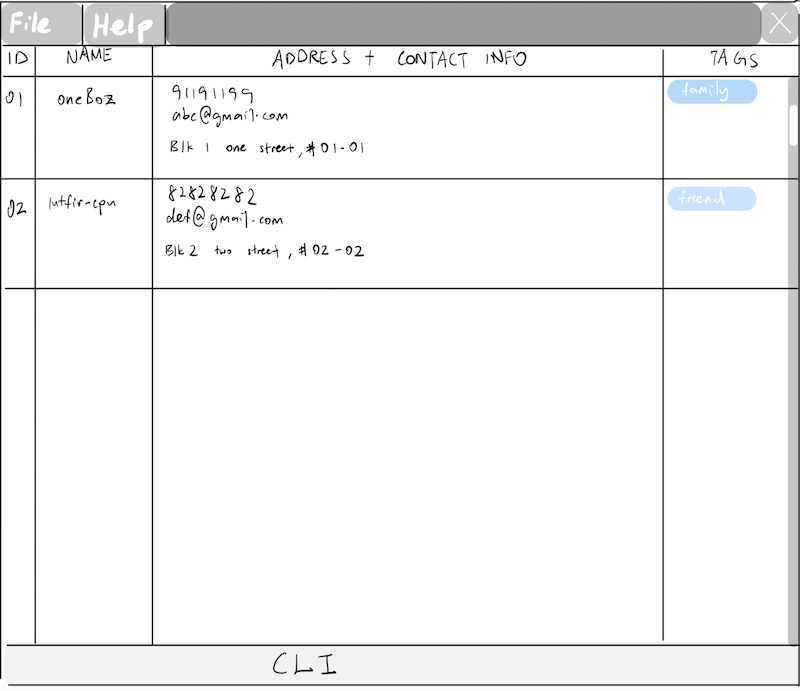 File Help
ID NAME ADDRESS + CONTACT INFO TAGS
01 oneBoz 91191199 family
abc@gmail.com
Blk 1 one street, #01-01
02 lutfir-cpu 82828282 friend
def@gmail.com
Blk 2 two street, #02-02
CLI